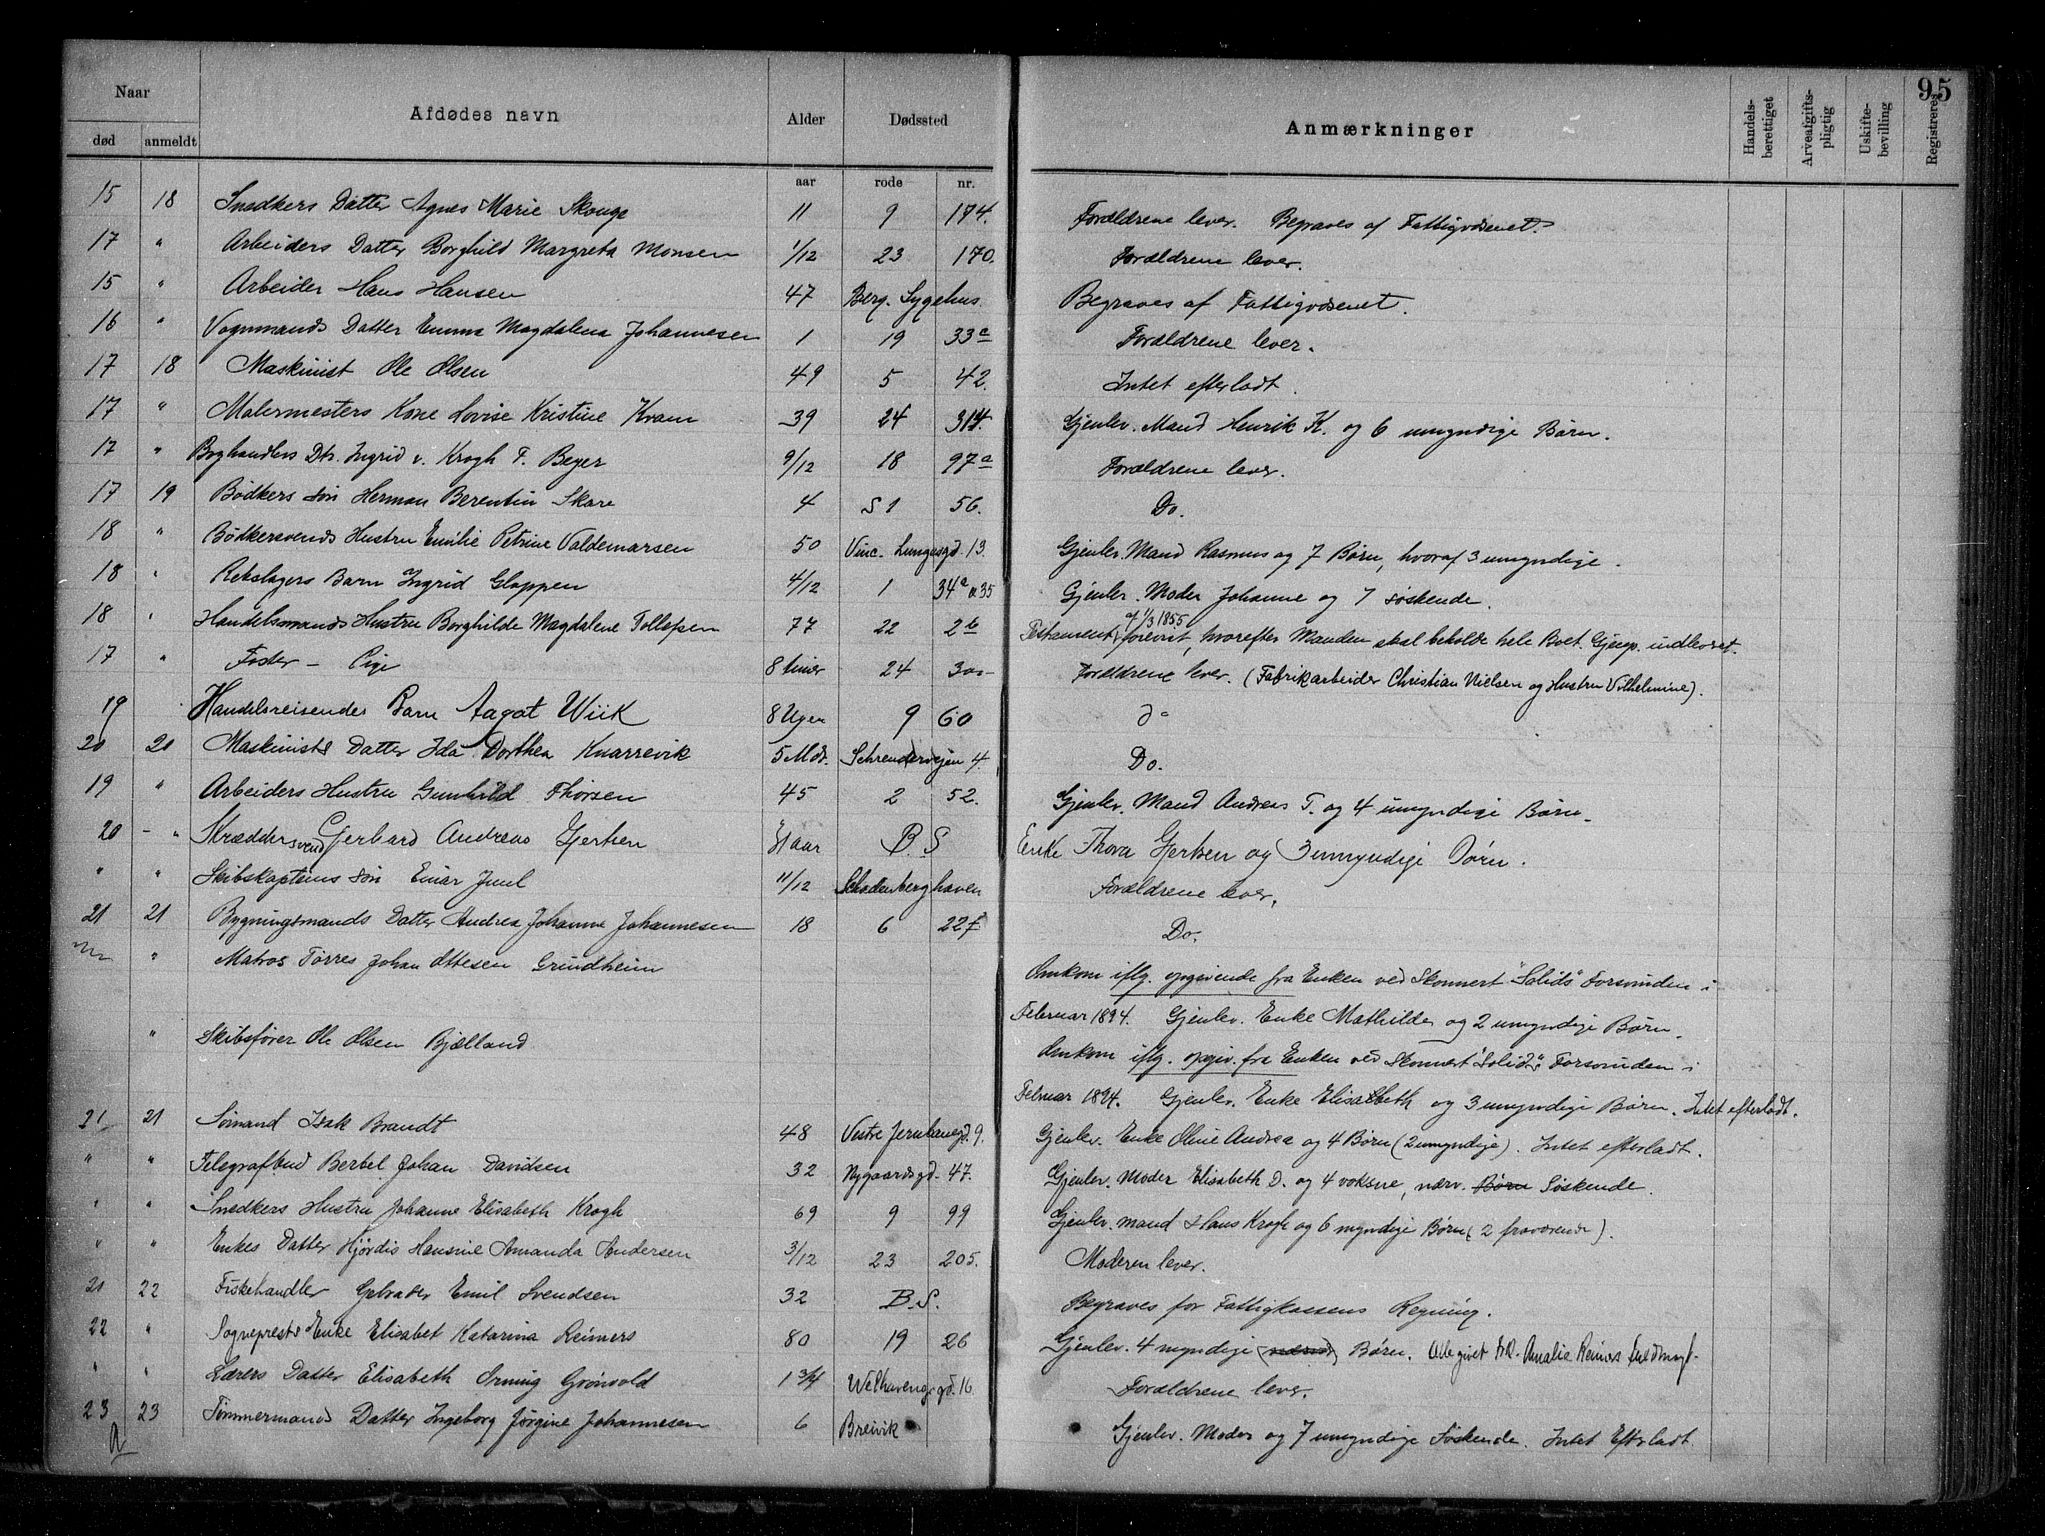 95
Naar
død anmeldt Afdødes navn Alder Dødssted Anmærkninger Handels-berettiget Arveafgifts-pligtig Uskifte-bevilling Registreret
aar rode nr.
15 18 Snedkers Datter Agnes Marie Skauge 11 9 174. Forældrene lever. Begraves af Fattigvæsenet.
17 " Arbeiders Datter Borghild Margreta Monsen 1/12 23 170. Forældrene lever.
15 " Arbeider Hans Hansen 47 Berg. Sygehus. Begraves af Fattigvæsenet.
16 " Vognmands Datter Emma Magdalena Johannesen 1 19 33a Forældrene lever.
17 18 Maskinist Ole Olsen 49 5 42. Intet efterladt.
17 " Malermesters Kone Lovise Kristine Kram 39 24 314. Gjenlev. Mand Henrik K. og 6 umyndige Børn.
17 " Boghandlers Dtr. Ingrid v. Krogh F. Beyer 9/12 18 97a Forældrene lever.
17 19 Bødkers Søn Herman Berentin Skare 4 S 1 56. Do.
18 " Bødkersvends Hustru Emilie Petrine Valdemarsen 50 Vinc. Lungesgd. 13. Gjenlev. Mand Rasmus og 7 Børn, hvoraf 3 umyndige.
18 " Rebslagers Barn Ingrid Gloppen 4/12 1 34a & 35 Gjenlev. Moder Johanne og 7 Søskende.
18 " Handelsmands Hustru Borghilde Magdalene Tollefsen 77 22 2b Testament af 1/3 1855 forevist, hvorefter Manden skal beholde hele Boet. Gjenp. indleveret.
17 " Foster - Pige 8 timer 24 300- Forældrene lever. (Fabrikarbeider Christian Nielsen og Hustru Vilhelmine).
19 Handelsreisendes Barn Aagot Wiik 8 Uger 9 60 do
20 20 Maskinists Datter Ida Dorthea Knarrevik 5 Mdr. Schrendervejen 4. Do.
19 " Arbeiders Hustru Gunhild Thorsen 45 2 52. Gjenlev. Mand Andreas T. og 4 umyndige Børn.
20 - " Skræddersvend Gerhard Andreas Gjertsen 31 aar B. S Enke Thora Gjertsen og 3 umyndige Børn.
" " Skibskaptems Søn Einar Juul 11/12 Schodenberghaven Forældrene lever.
21 21 Bygningsmands Datter Andrea Johanne Johannesen 18 6 22f Do.
" Matros Tørres Johan Ottesen Grindheim Omkom iflg. opgivende fra Enken ved Skonnert "Solids" Forsvinden i
Februar 1894. Gjenlev. Enke Mathilde og 2 umyndige Børn.
" Skibsfører Ole Olsen Bjælland Omkom iflg. opgiv. fra Enken ved Skonnert "Solids" Forsvinden i
Februar 1894. Gjenlev. Enke Elisabeth og 3 umyndige Børn. Intet efterladt.
21 21 Sømand Isak Brandt 48 Vestre Jernbanegd. 9. Gjenlev. Enke Oline Andrea og 4 Børn (2 umyndige). Intet efterladt.
" " Telegrafbud Berbel Johan Davidsen 32 Nygaardsgd. 47. Gjenlev. Moder Elisabeth D. og 4 voksne, nærv. Børn Søskende.
" " Snedkers Hustru Johanne Elisabeth Krogh 69 9 99 Gjenlev. mand Hans Krogh og 6 myndige Børn (2 fraværende).
" " Enkes Datter Hjørdis Hansine Amanda Andersen 3/12 23 205. Moderen lever.
21 22 Fiskehandler Gebrader Emil Svendsen 32 B. S. Begraves for Fattigkassens Regning.
22 " Sogneprests Enke Elisabet Katarina Reimers 80 19 26 Gjenlev. 4 myndige Børn. Udlevgivet Frk. Amalie Reimers Fuldmagt.
" " Lærers Datter Elisabeth Orning Grønvold 1 3/4 Welhavensgd. 16 Forældrene lever.
23 23 Tømmermands Datter Ingeborg Jørgine Johannesen 6 Breivik Gjenlev. Moder og 7 umyndige Søskende. Intet Efterladt